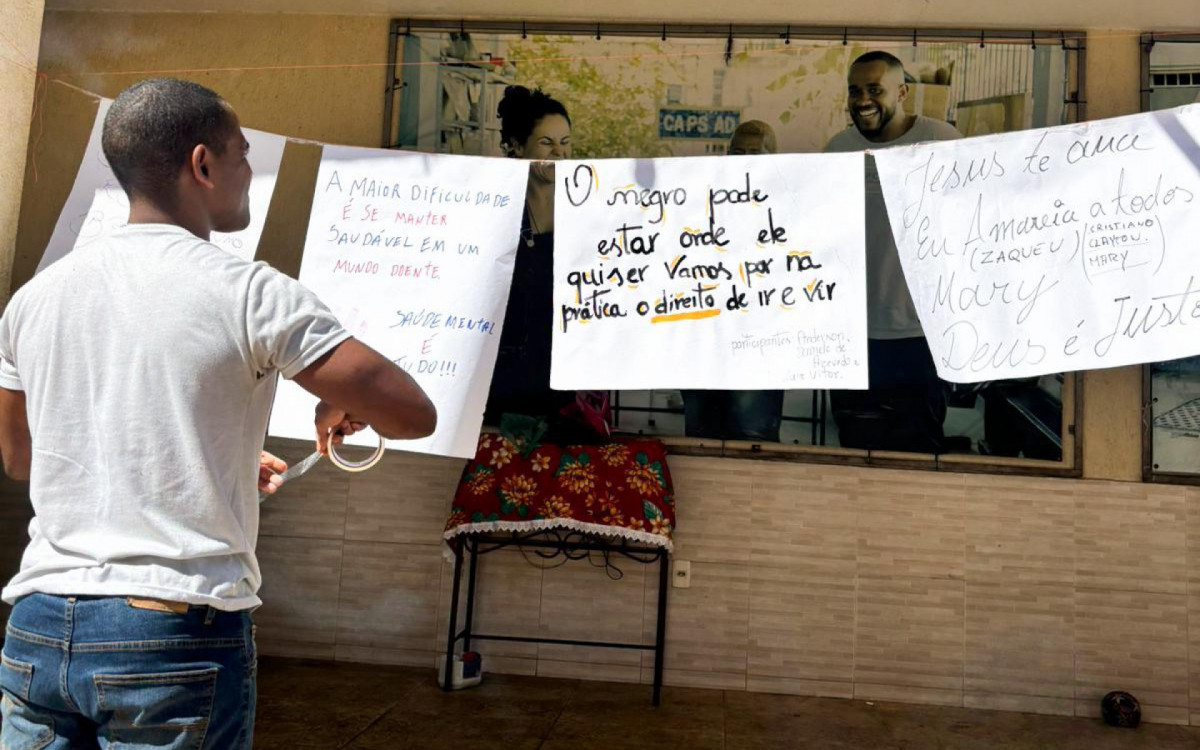 CAPS AD
A MAIOR DIFICULDADE
É SE MANTER
SAUDÁVEL EM UM
MUNDO DOENTE.
SAÚDE MENTAL
É
TUDO!!!
O negro pode
estar onde ele
quiser Vamos por na
prática o direito de ir e vir
participantes: Anderson,
Azevedo e
Vitor.
Jesus te ama
Eu Amaria a todos
(ZAQUEU) (CRISTIANO
CLAYTON.
MARY)
Mary
Deus é Justo